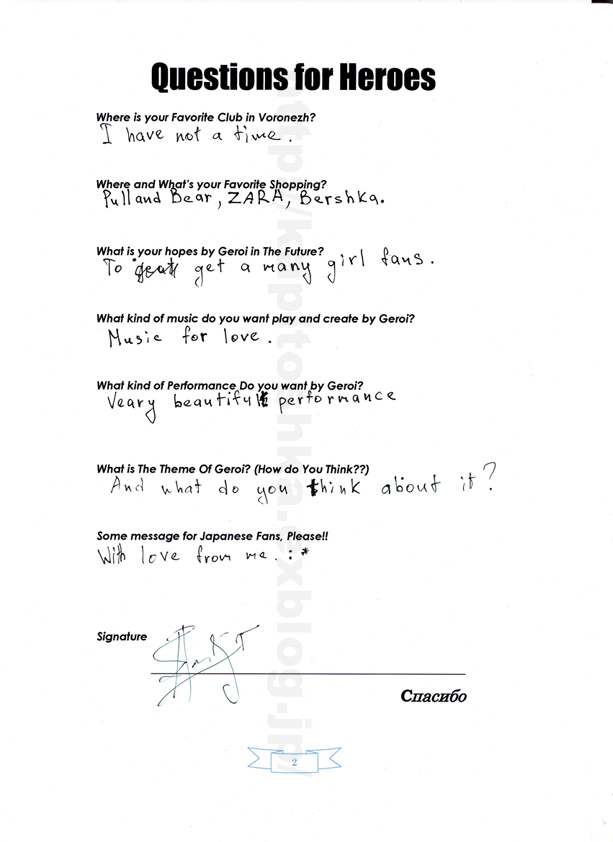 Questions for Heroes
Where is your Favorite Club in Voronezh?
I have not a time.
Where and What's your Favorite Shopping?
Pull and Bear, ZARA, Bershka.
What is your hopes by Geroi in The Future?
To get a many girl fans.
What kind of music do you want play and create by Geroi?
Music for love.
What kind of Performance Do you want by Geroi?
Veary beautiful performance
What is The Theme Of Geroi? (How do You Think??)
And what do you think about it?
Some message for Japanese Fans, Please!!
With love from me. :*
Signature
Спасибо
2